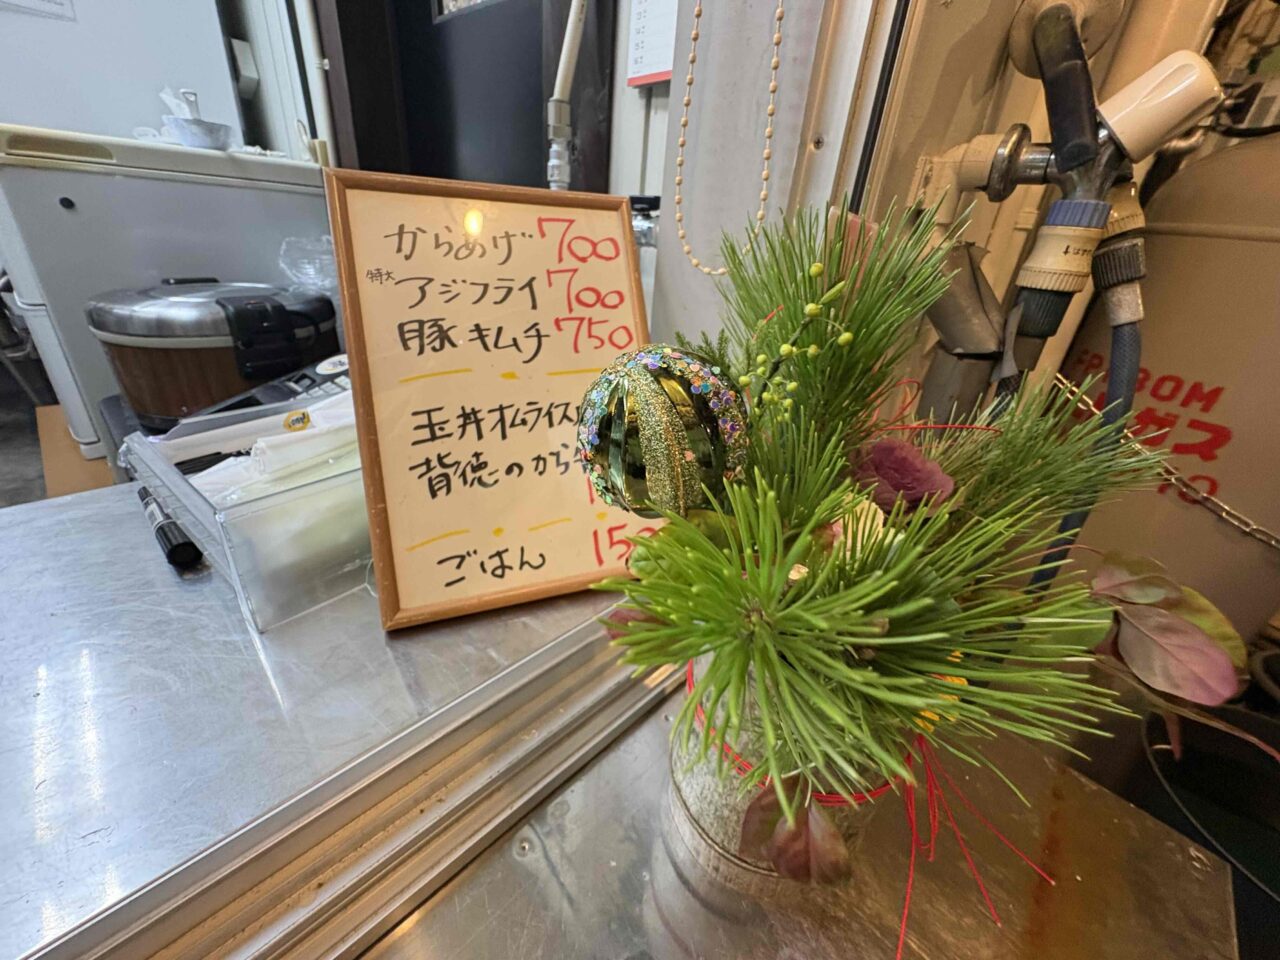 からあげ 700
特大 アジフライ 700
豚キムチ 750
玉丼オムライス
背徳のから
ごはん 15
BOM
ガス